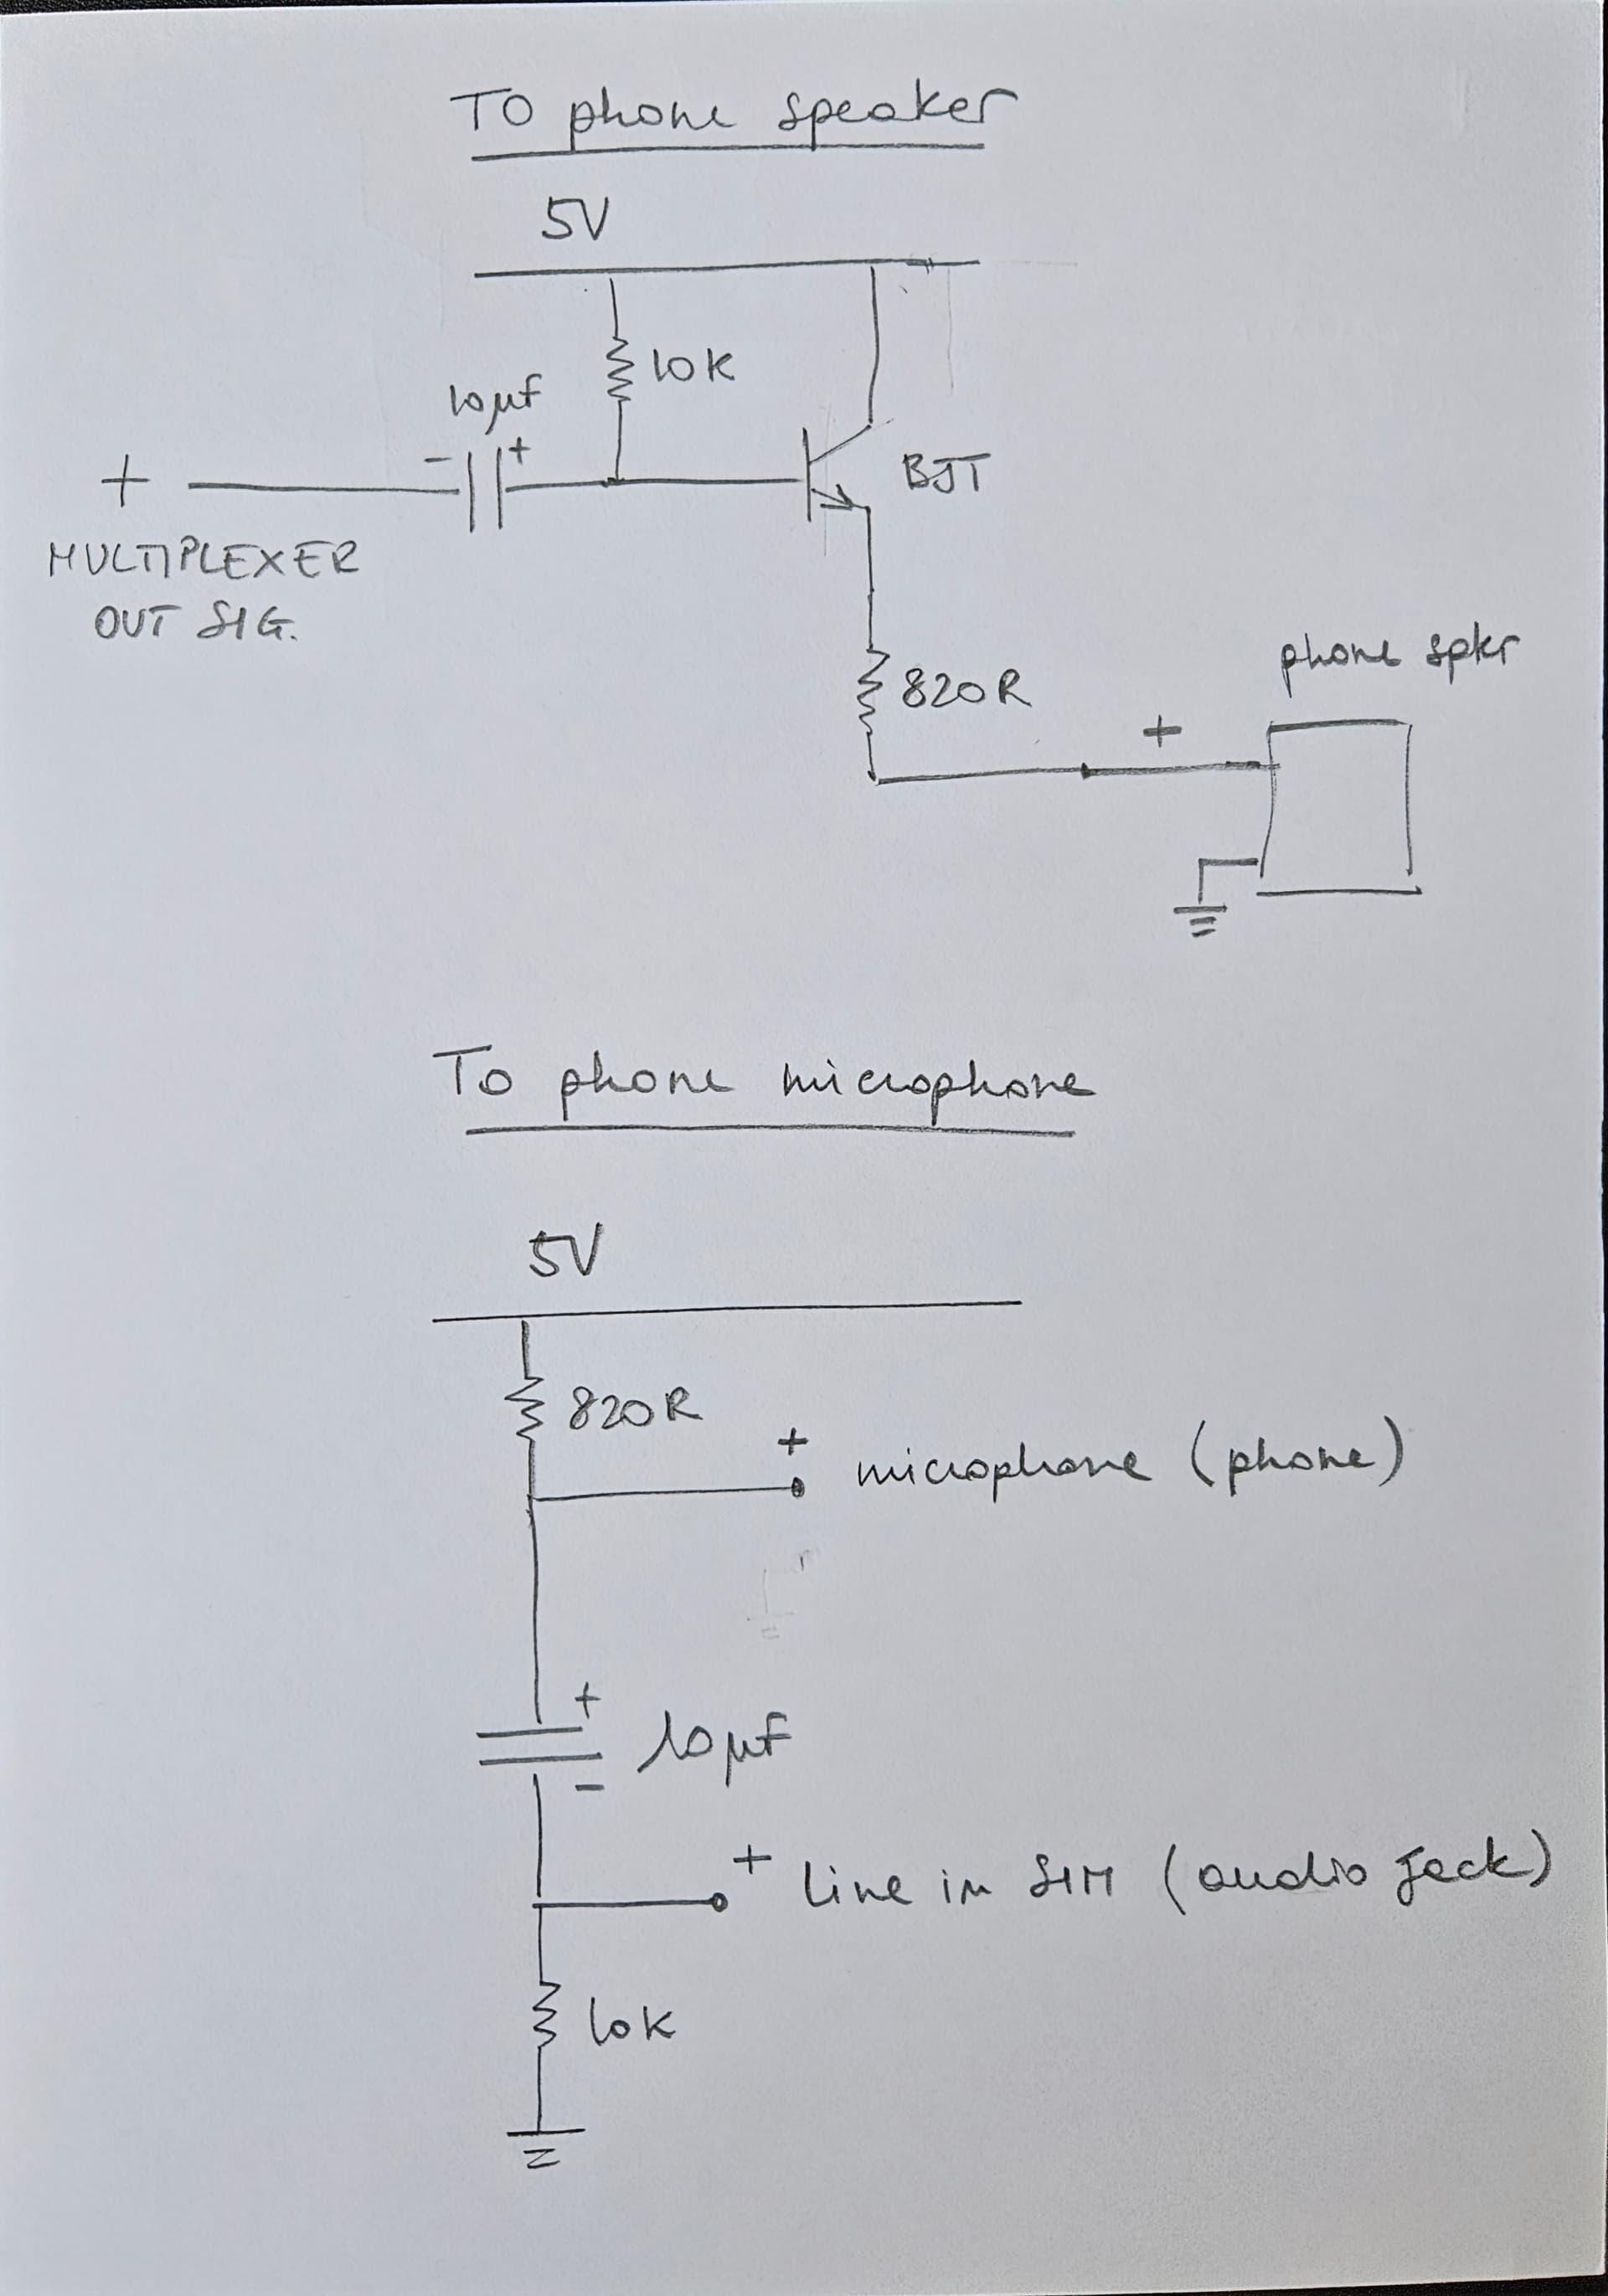 TO phone speaker
5V
10K
10µf
- +
+
BJT
MULTIPLEXER
OUT SIG.
phone spkr
820R
+
To phone microphone
5V
820R
+
microphone (phone)
+
10µf
-
+ Line in SIM (audio jack)
10K